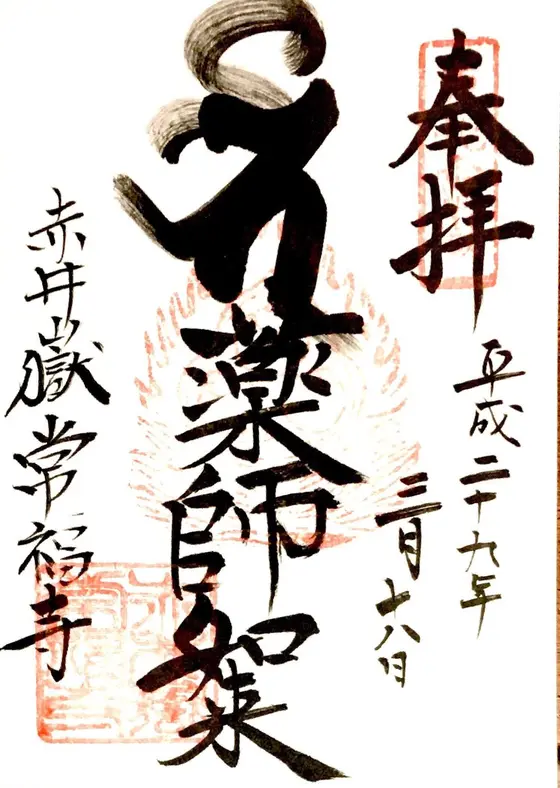 奉拝
平成二十九年
三月十八日
薬師如来
赤井嶽常福寺